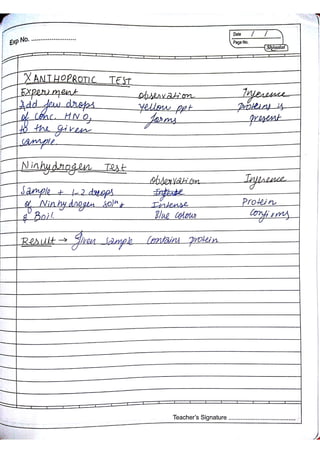 Exp No. ........................
Date / /
Page No.
Shivalal
XANTHOPROTIC TEST
Experiment Observation Inference
Add few drops Yellow ppt Proteins is
of Conc. HNO3 forms present
to the given
sample.
Ninhydrogen Test
Observation Inference
Sample + 1-2 drops
of Ninhydrogen soln + Intense Protein
& Boil Blue colour confirms
Result → Given sample contains protein
Teacher's Signature ....................................